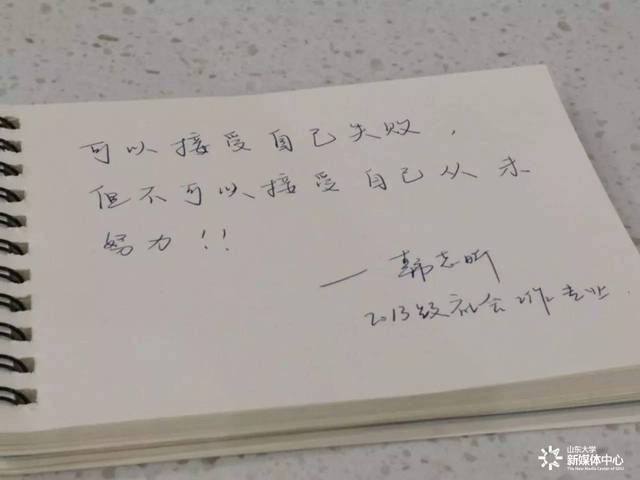 可以接受自己失败，
但不可以接受自己从未
努力！！
—韩志昕
2013级社会工作专业.
山东大学
新媒体中心
The New Media Center of SDU